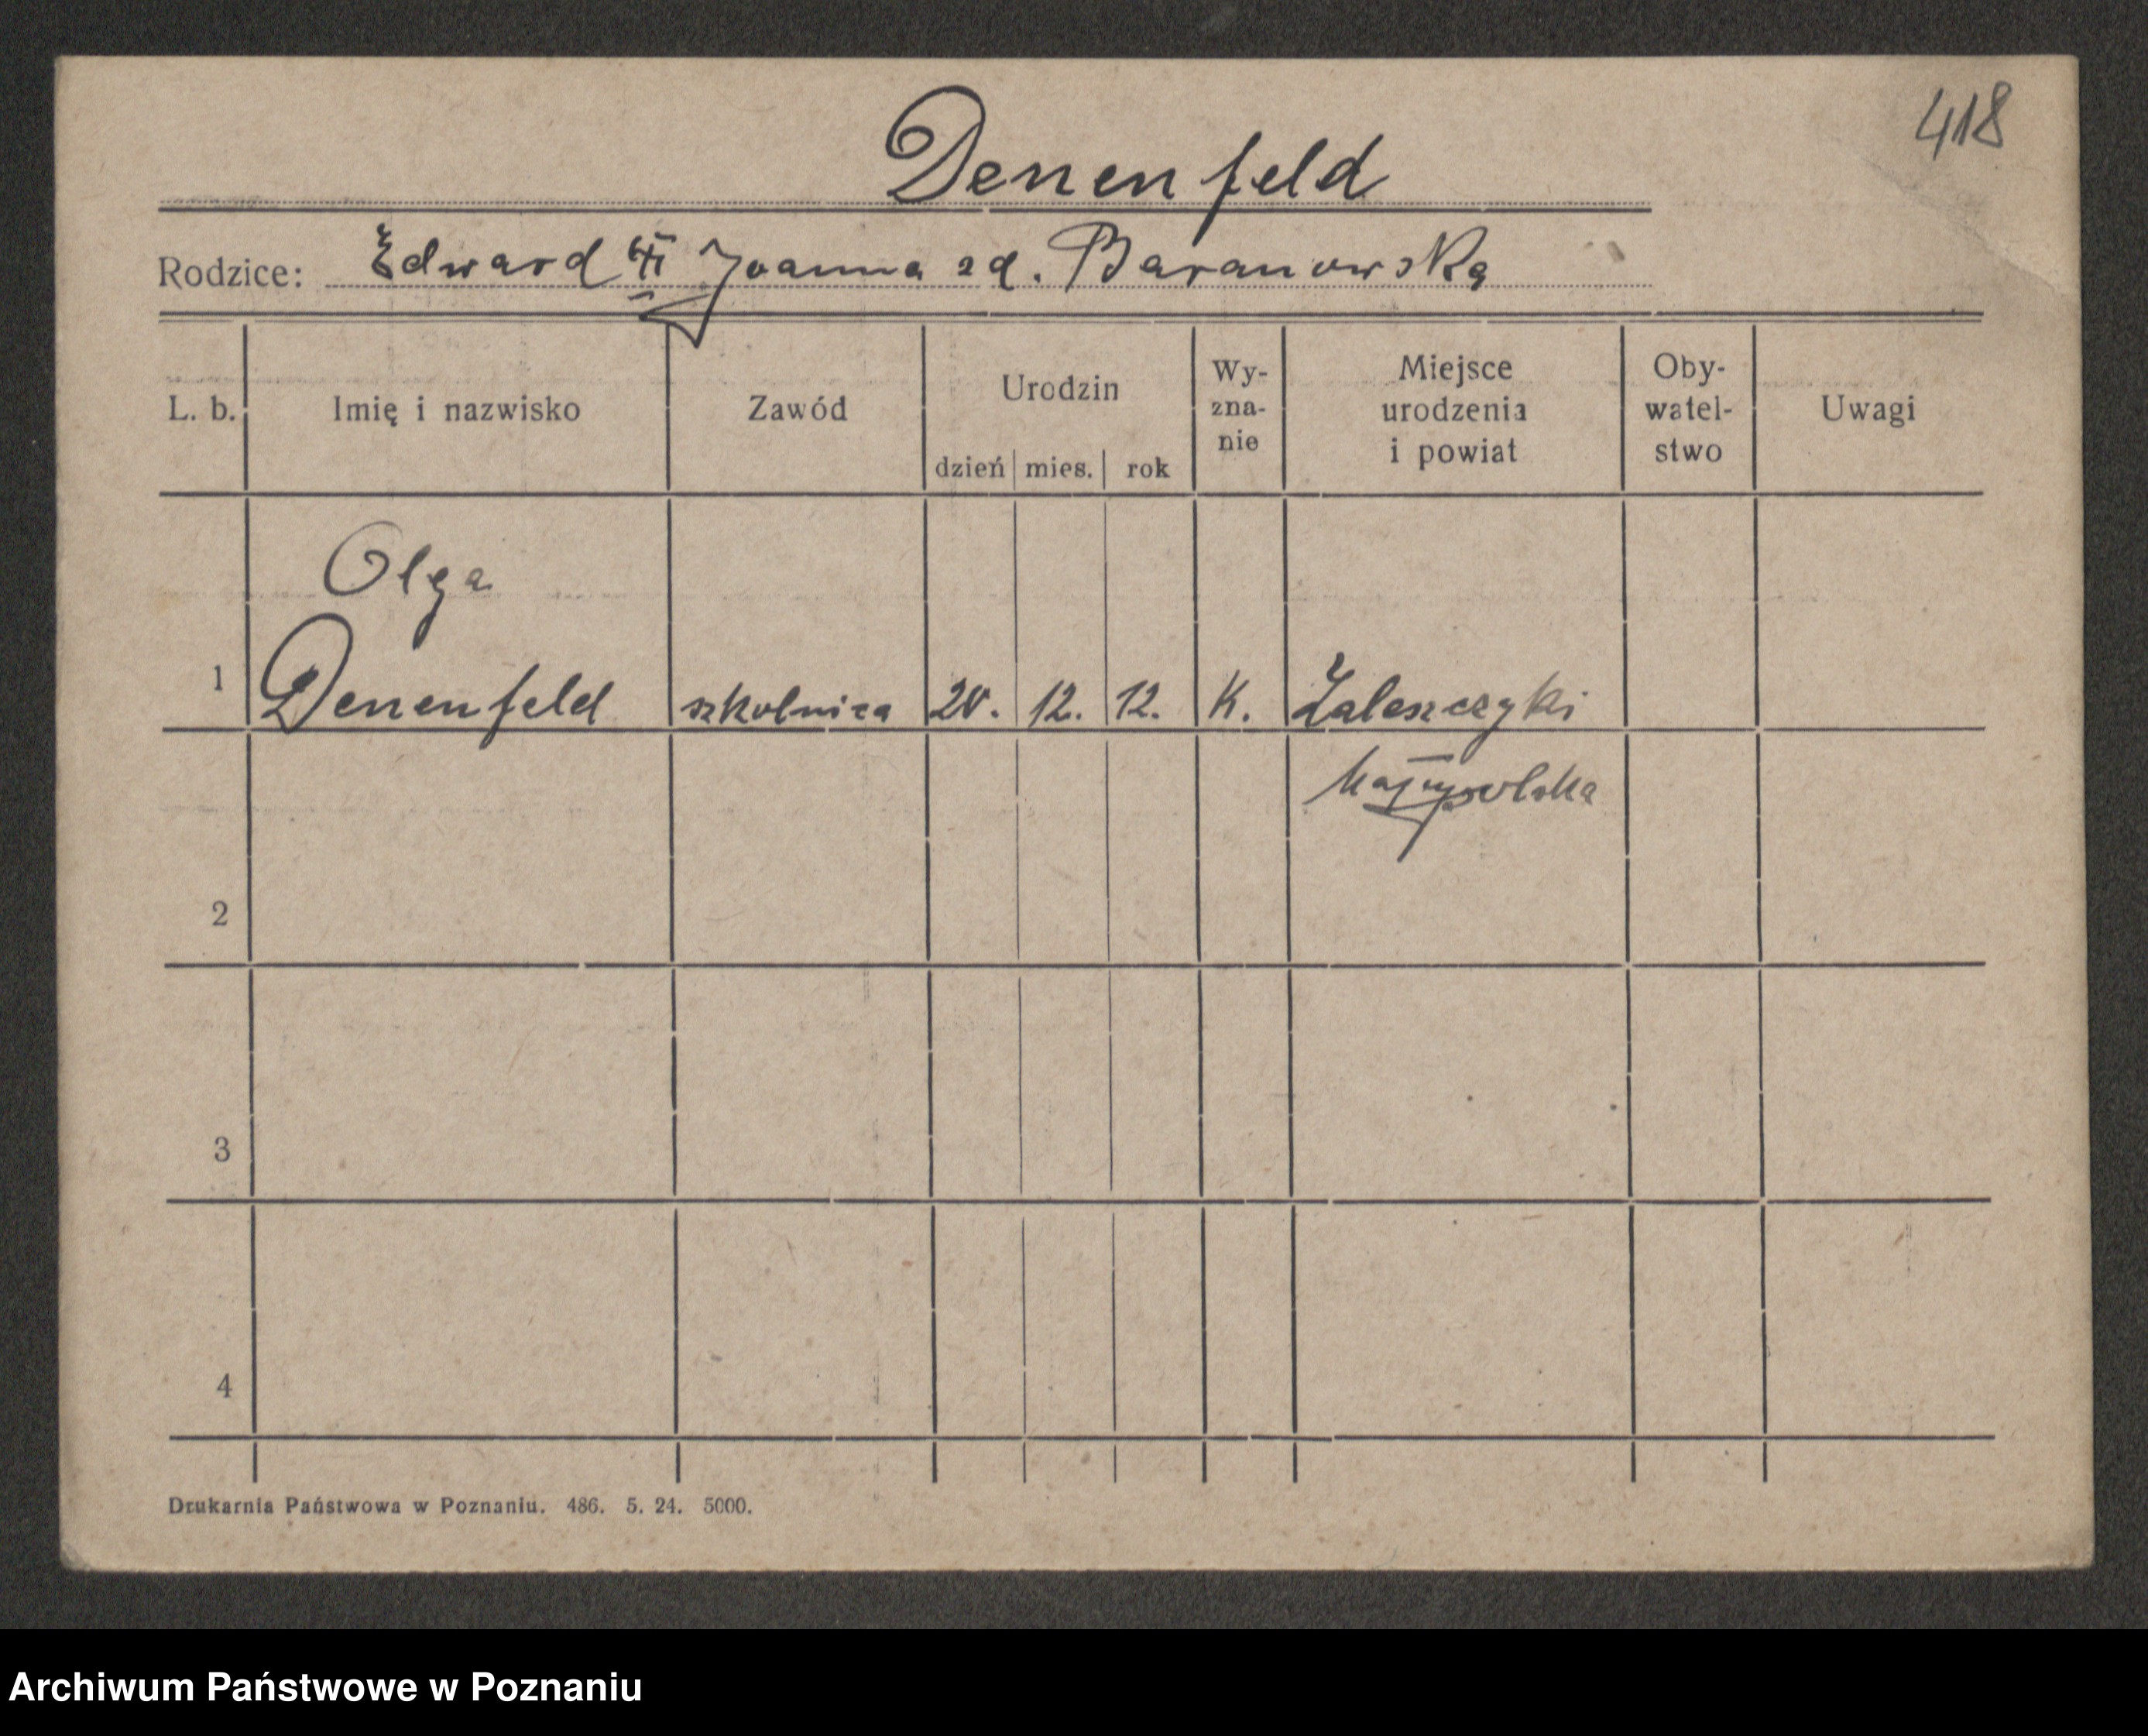 418
Denenfeld
Rodzice: Edward Joanna zd. Baranowska
L. b. Imię i nazwisko Zawód Urodzin dzień mies. rok Wy-zna-nie Miejsce urodzenia i powiat Oby-watel-stwo Uwagi
Olga
1 Denenfeld szkolnica 20. 12. 12. K. Zaleszczyki
Małopolska
2
3
4
Drukarnia Państwowa w Poznaniu. 486. 5. 24. 5000.
Archiwum Państwowe w Poznaniu